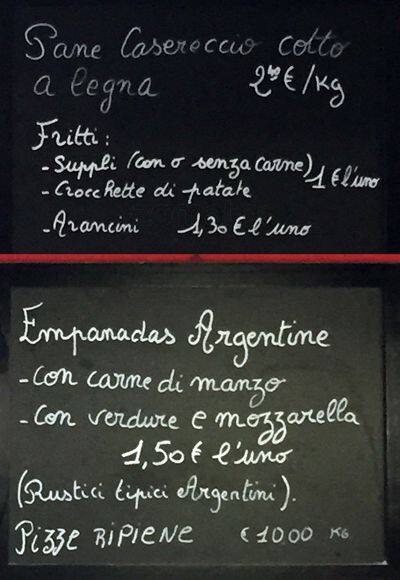 Pane Casereccio cotto
a legna 2,40 €/Kg
Fritti:
- Supplì (con o senza carne) 1 € l'uno
- Crocchette di patate
- Arancini 1,30 € l'uno
Empanadas Argentine
- con carne di manzo
- con verdure e mozzarella
1,50 € l'uno
(Rustici tipici Argentini).
PIZZE RIPIENE € 10.00 KG